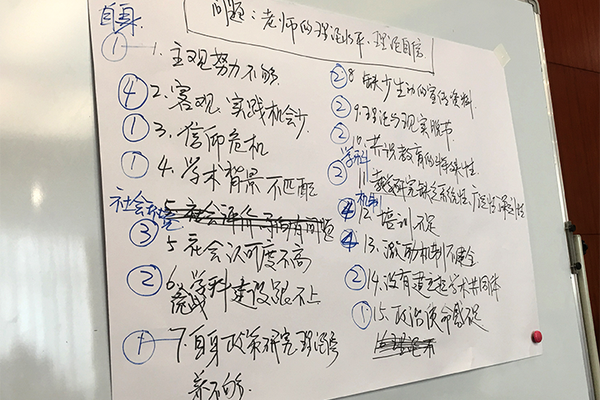 自身
问题：老师的理论水平、理论自信
① 1. 主观努力不够
④ 2. 客观、实践机会少
① 3. 信仰危机
① 4. 学术背景不匹配
社会
③ 5. 社会认可度不高
② 6. 学科建设跟不上
① 7. 自身政策研究理论
养不够.
② 8. 缺少生动的宣传资料
② 9. 理论与现实脱节
② 10. 教育的特殊性
学科
② 11. 教学研究缺乏系统性、
机制
④ 12. 培训不足
④ 13. 激励机制不健全
② 14. 没有建立起学术共同体
① 15. 政治使命感不足